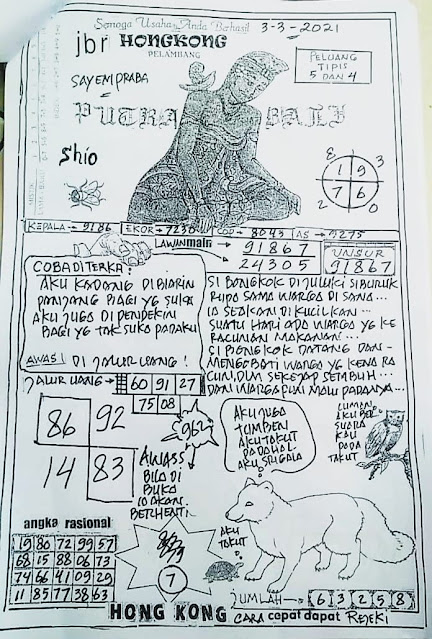 Semoga Usaha Anda Berhasil
3-3-2021
jbr HONGKONG
PELAMBANG
SAYEMPRABA
PELUANG
TIPIS
5 DAN 4
PUTRA BALI
Shio
8 3
1 9
7 6
2 0
KEPALA → 9186 EKOR → 7230 COP → 8043 AS → 9275
LAWAN main → 91867
24305
UNSUR
91867
COBA DITERKA :
AKU KADANG DIBIARIN
PANJANG BAGI YG SUKA
AKU JUGA DI PENDEKIN
BAGI YG TAK SUKA PADAKU
AWAS! DI JALUR UANG!
JALUR UANG → 60 91 27
75 08
SI BONGKOK DI JULUKI SI BURUK
RUPA SAMA WARGA DI SANA...
IA SEAKAN DI KUCILKAN...
SUATU HARI ADA WARGA YG KE
RACUNAN MAKANAN...
SI BONGKOK DATANG DAN
MENGOBATI WARGA YG KENA RA
CUN, DLM SEKEJAP SEMBUH...
DAN WARGA PUN MALU PADANYA...
86 92
14 83
962
AWASS
BILA DI
BUKA
IA AKAN
BERHENTI...
AKU JUGA
TUMBEN
AKU TAKUT
PADAHAL
AKU SRIGALA
LUMAN,
AKU BER
SUARA
KAU
PADA
TAKUT
AKU
TAKUT
angka rasional
19 80 72 99 57
68 15 88 06 73
74 66 41 09 29
11 85 77 38 63
7
JUMLAH → 6 3 2 5 8
HONG KONG CARA cepat dapat REJEKI